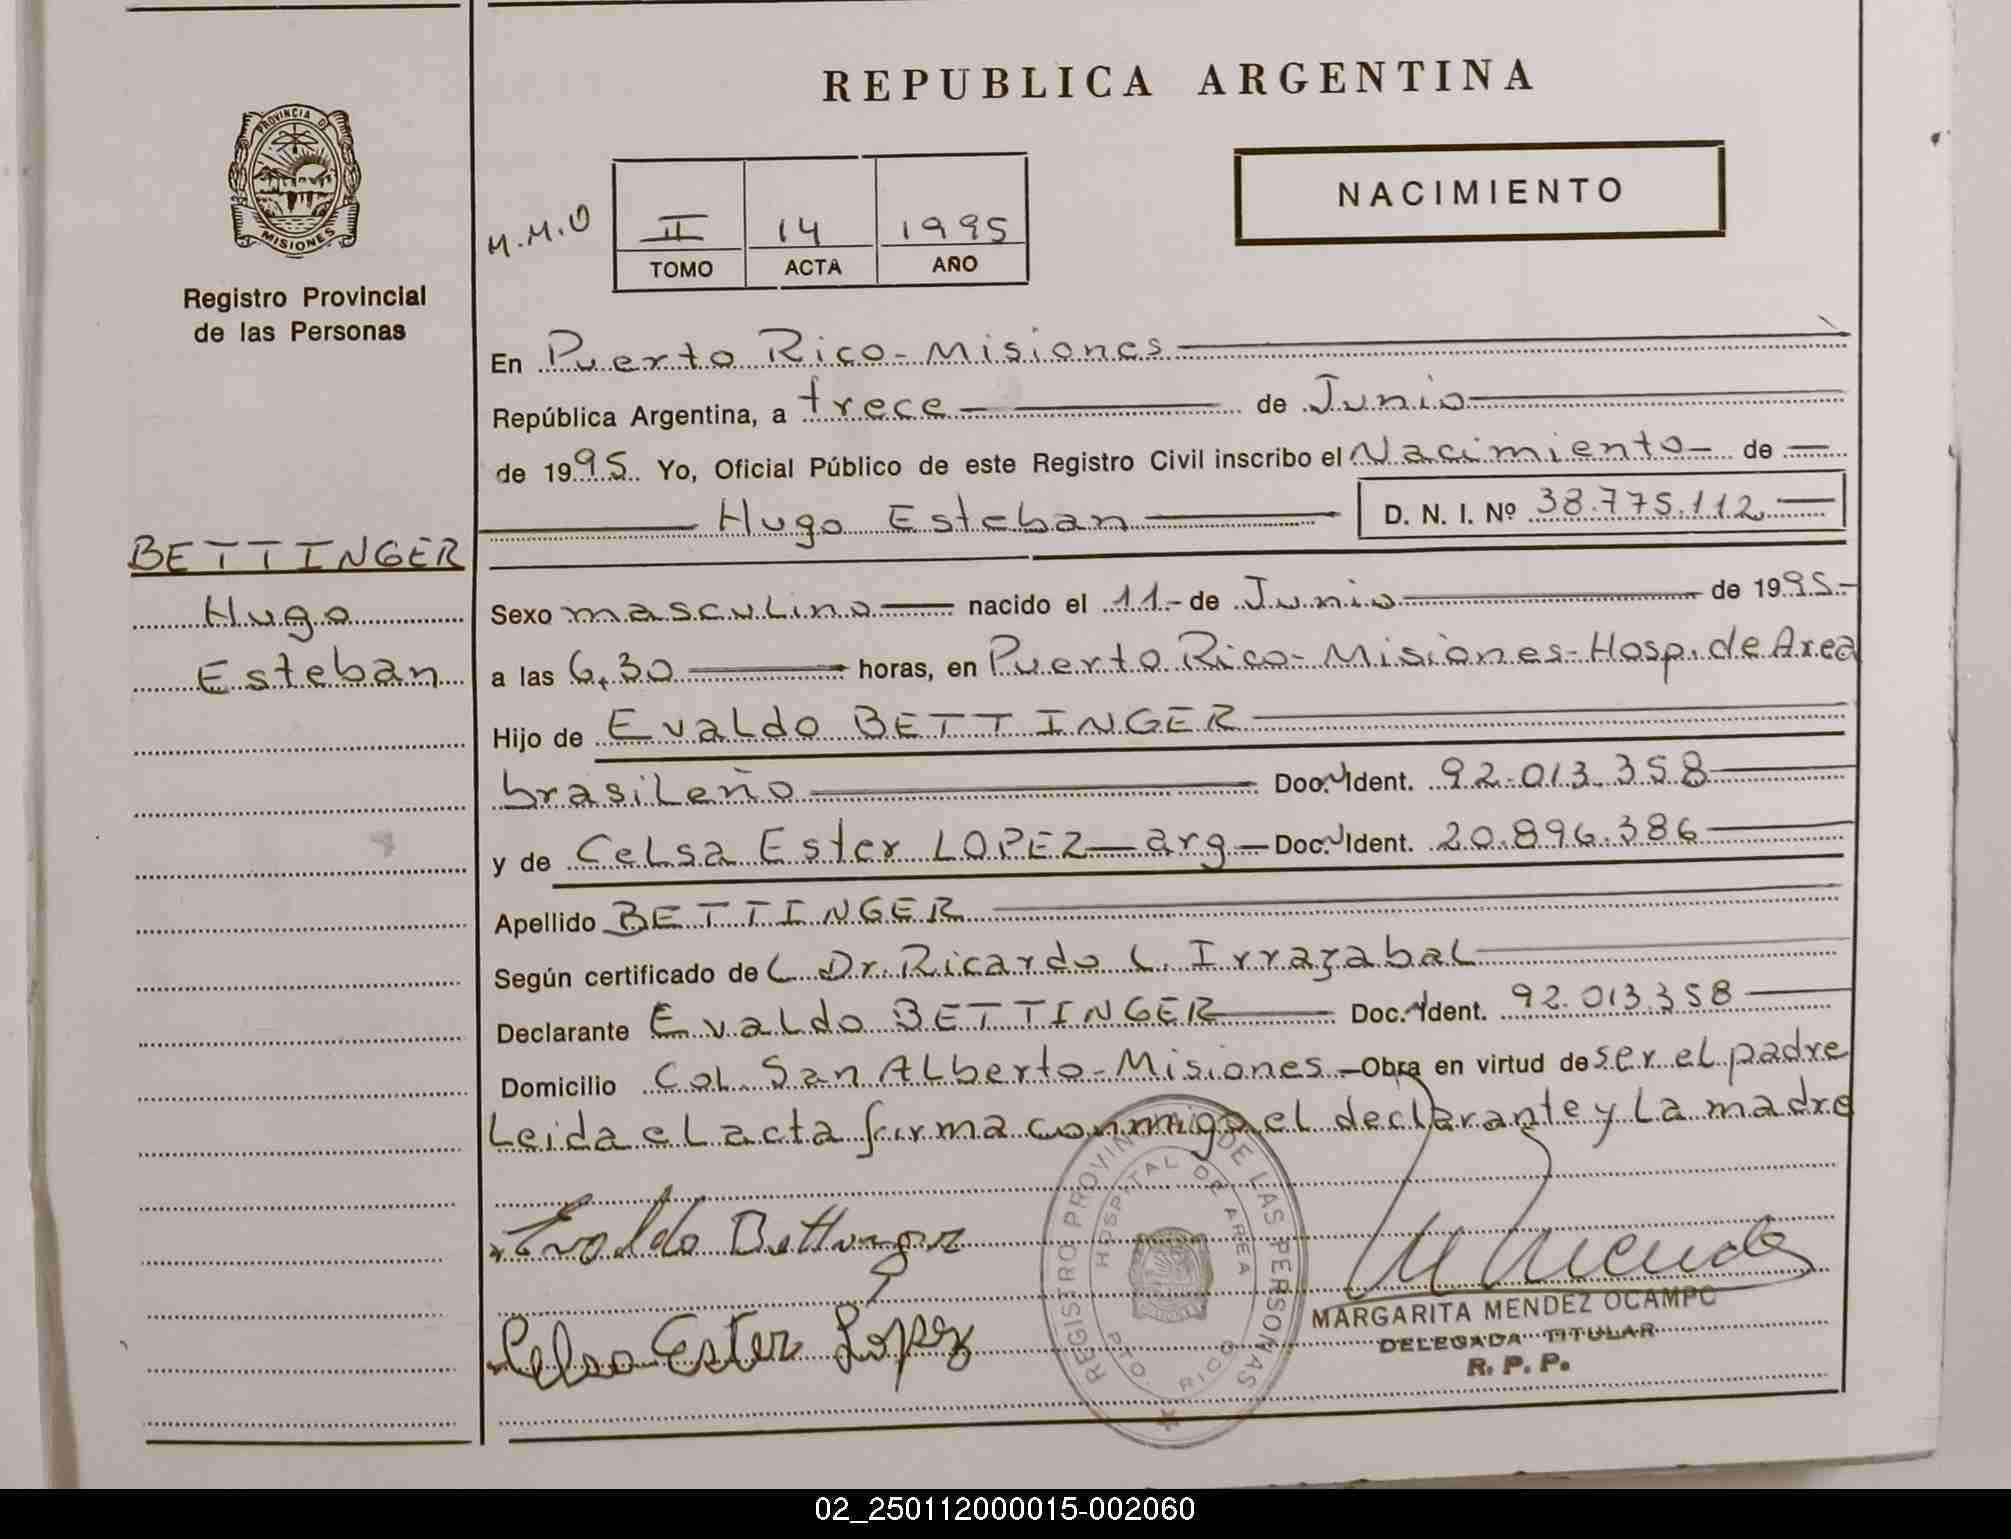 REPUBLICA ARGENTINA
PROVINCIA DE
MISIONES
Registro Provincial
de las Personas
NACIMIENTO
M.M.O
II 14 1995
TOMO ACTA AÑO
En Puerto Rico - Misiones
República Argentina, a trece de Junio
de 1995. Yo, Oficial Público de este Registro Civil inscribo el Nacimiento de
Hugo Esteban D. N. I. Nº 38.775.112
BETTINGER
Hugo
Esteban
Sexo masculino nacido el 11 - de Junio de 1995.-
a las 6,30 horas, en Puerto Rico - Misiones - Hosp. de Area
Hijo de Evaldo BETTINGER
brasileño Doc. Ident. 92.013.358
y de Celsa Ester LOPEZ - arg - Doc. Ident. 20.896.386
Apellido BETTINGER
Según certificado de L Dr. Ricardo L. Irrazabal
Declarante Evaldo BETTINGER Doc. Ident. 92.013.358
Domicilio Col. San Alberto - Misiones - Obra en virtud de ser el padre
Leida el acta firma conmigo el declarante y la madre
Evaldo Bettinger
Celsa Ester López
REGISTRO PROVINCIAL DE LAS PERSONAS
HOSPITAL DE AREA
PTO. RICO
M Mendez
MARGARITA MENDEZ OCAMPO
DELEGADA TITULAR
R. P. P.
02_250112000015-002060